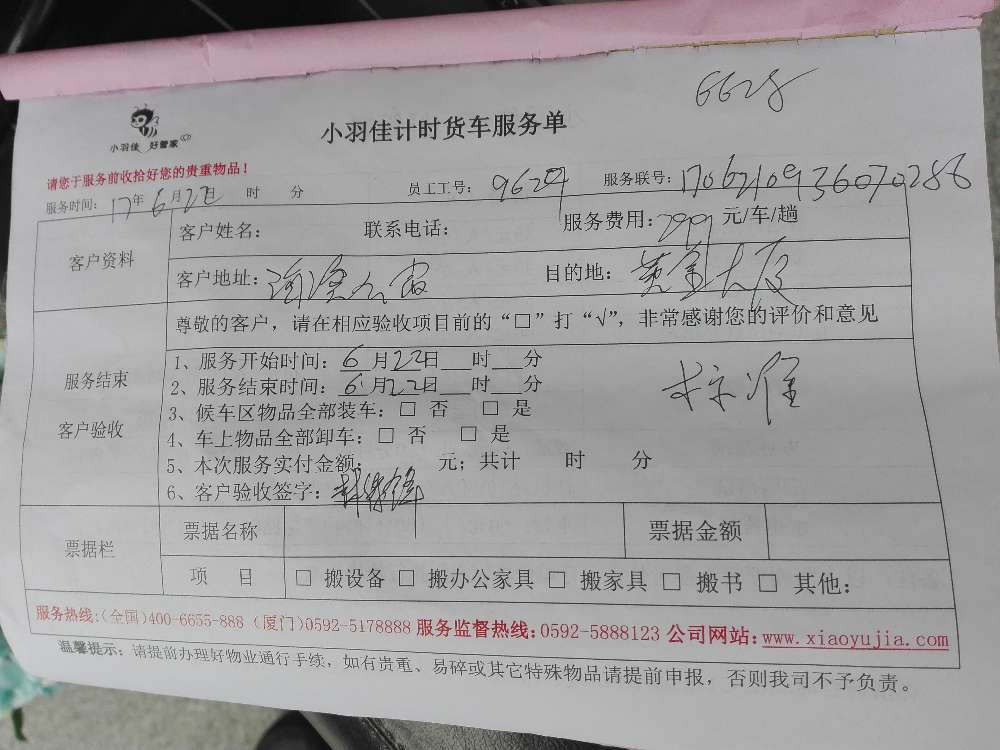 6628
小羽佳 好管家
小羽佳计时货车服务单
请您于服务前收拾好您的贵重物品！
服务时间：17年6月22日 时 分 员工工号：9624 服务联号：1706210936070286
客户资料
客户姓名： 联系电话： 服务费用：299元/车/趟
客户地址： 目的地：黄金大厦
服务结束
客户验收
尊敬的客户，请在相应验收项目前的“□”打“√”，非常感谢您的评价和意见
1、服务开始时间：6月22日 时 分
2、服务结束时间：6月22日 时 分
3、候车区物品全部装车：□ 否 □ 是
4、车上物品全部卸车：□ 否 □ 是
5、本次服务实付金额： 元；共计 时 分
6、客户验收签字：
票据栏
票据名称 票据金额
项 目 □ 搬设备 □ 搬办公家具 □ 搬家具 □ 搬书 □ 其他：
服务热线:(全国)400-6655-888 (厦门)0592-5178888 服务监督热线:0592-5888123 公司网站:www.xiaoyujia.com
温馨提示：请提前办理好物业通行手续，如有贵重、易碎或其它特殊物品请提前申报，否则我司不予负责。